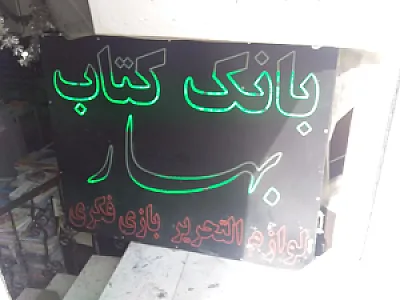 بانک کتاب
بهار
لوازم التحریر بازی فکری